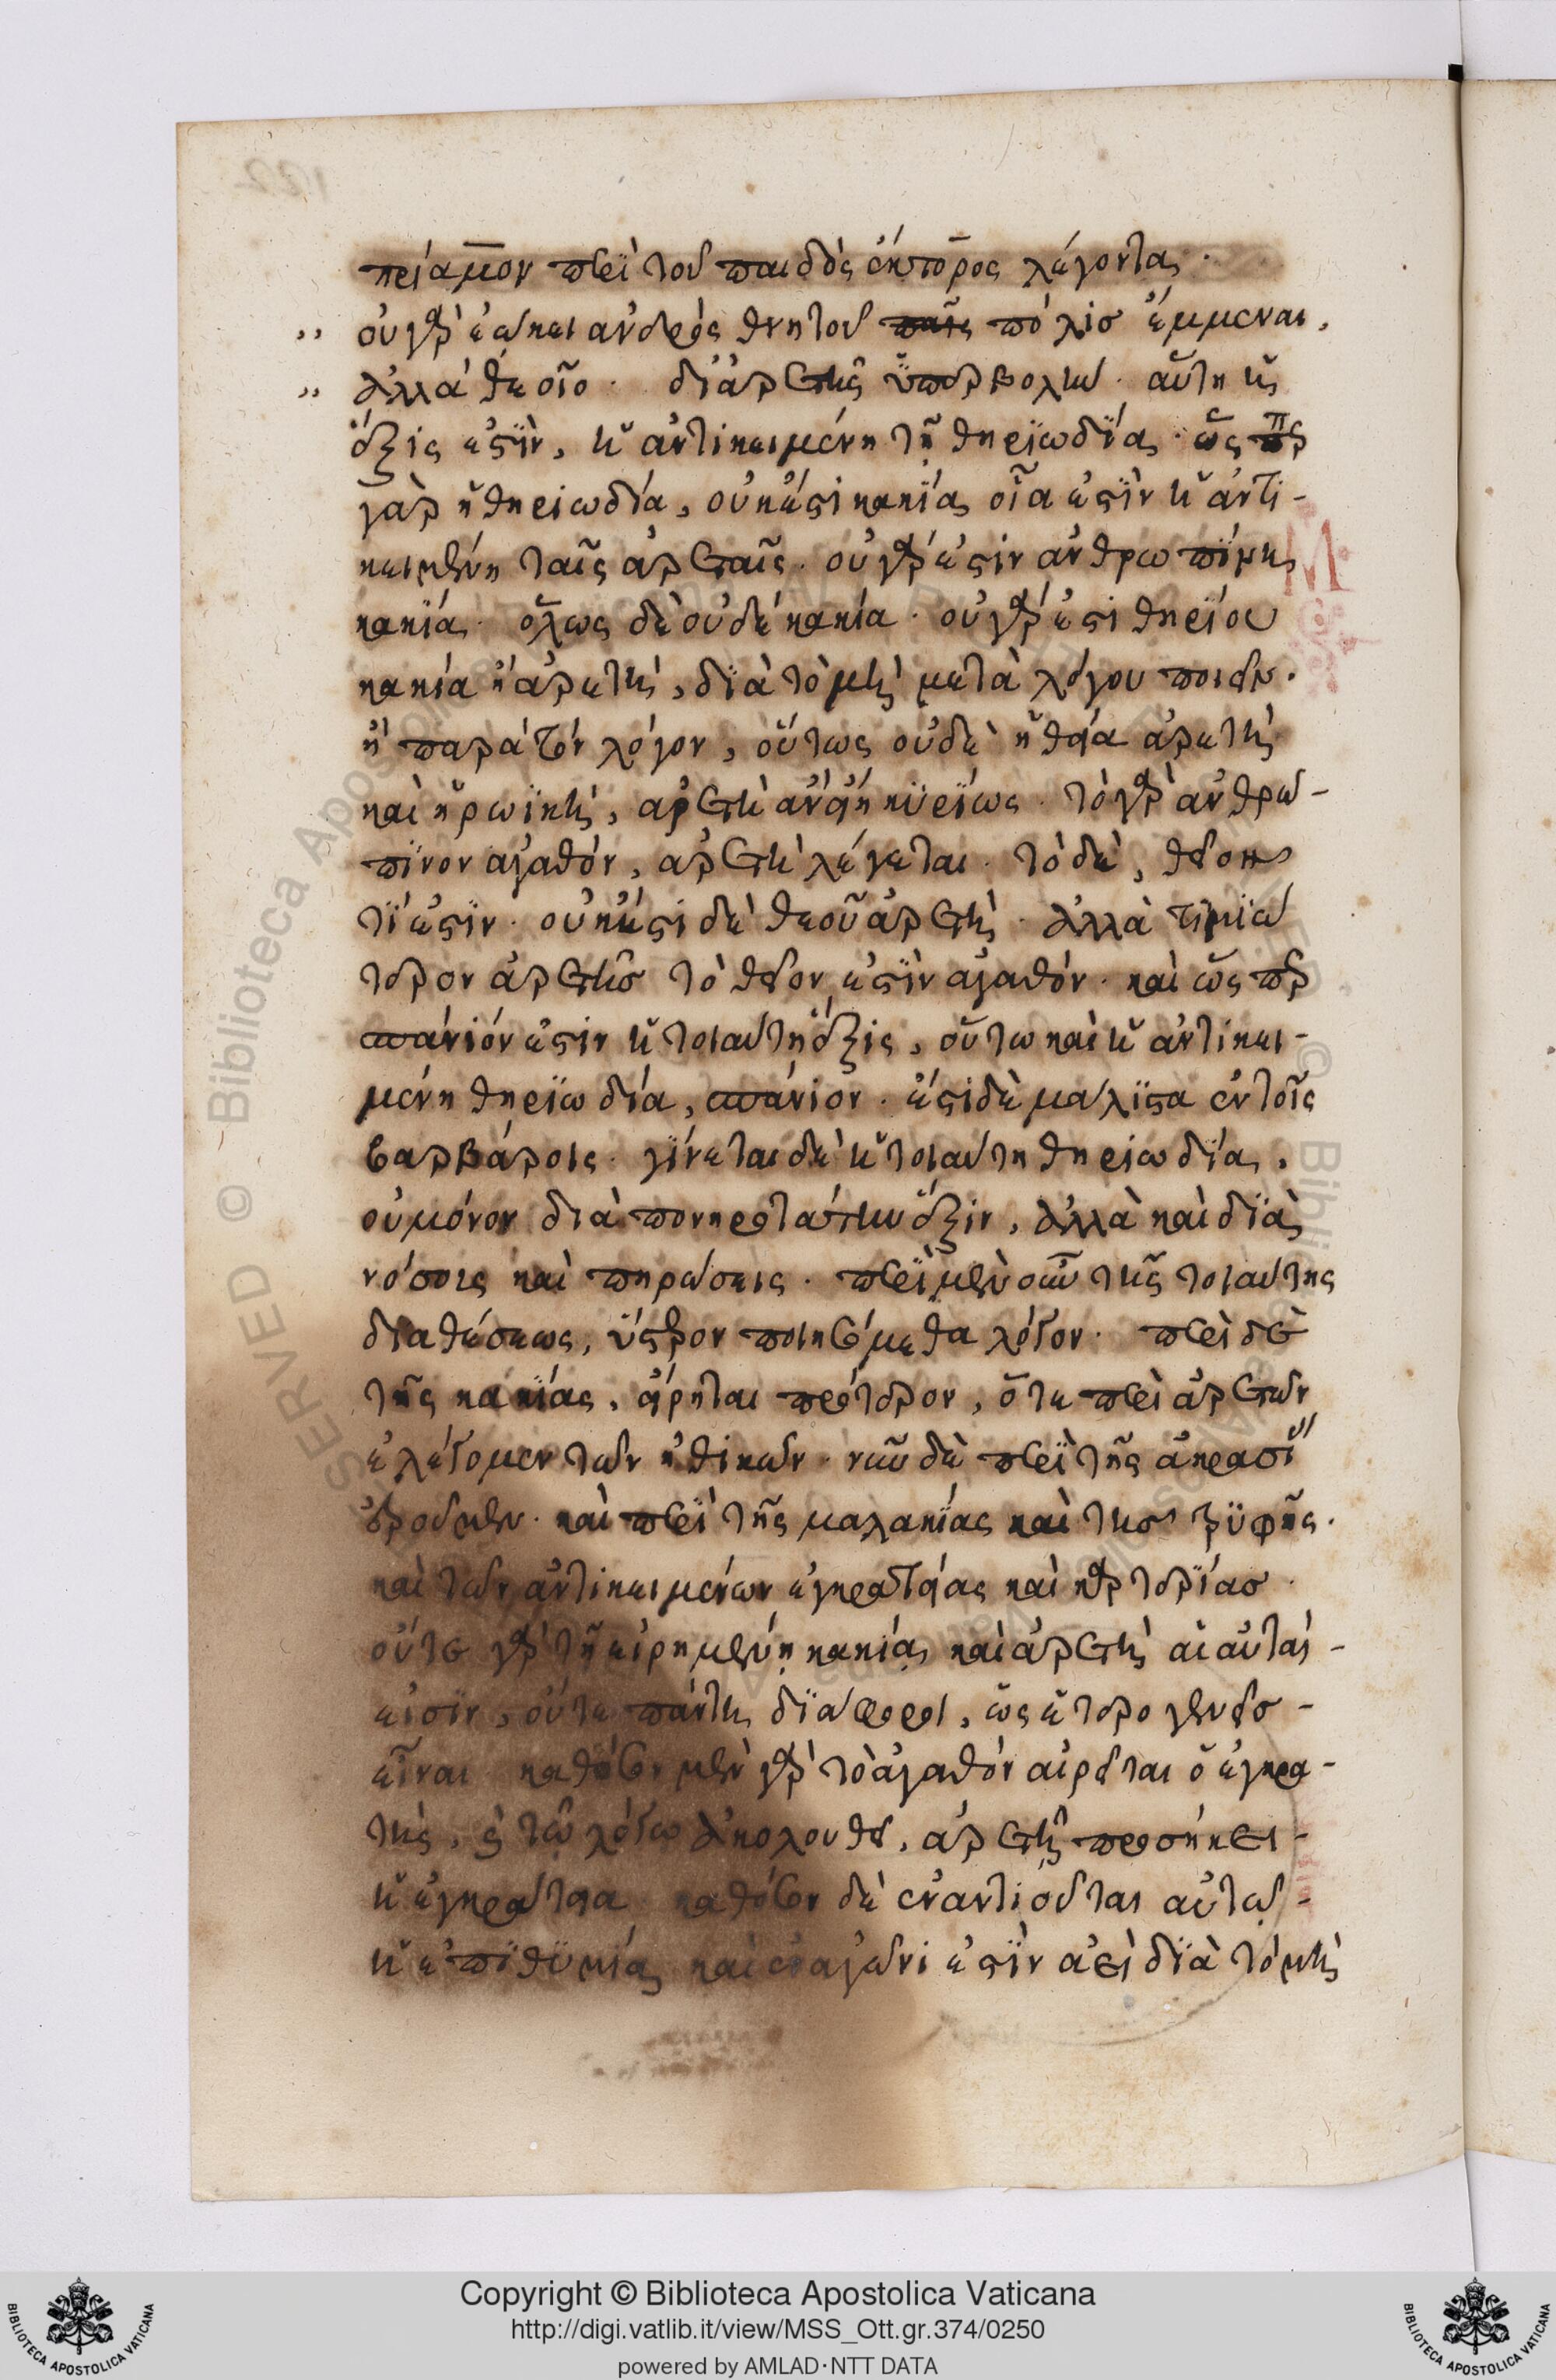 πρίαμον περὶ τοῦ παιδὸς ἕκτορος λέγοντα·
οὐ γὰρ ἐῴκει ἀνδρός θνητοῦ παῖς πόλισ ἔμμεναι,
ἀλλὰ θεοῖο. δι' ἀρετῆς ὑπερβολὴν. αὕτη ἡ
ἕξις ἐστὶν, ἡ ἀντικειμένη τῇ θηριωδία. ὥςπερ
γὰρ ἡ θηριωδία, οὐκ ἔστι κακία οἷα ἐστὶν ἡ ἀντι-
κειμένη ταῖς ἀρεταῖς. οὐ γάρ ἐστιν ἀνθρωπίνη
κακία. ὅλως δὲ οὐδὲ κακία. οὐ γάρ ἐστι θηρίου
κακία ἢ ἀρετὴ, διὰ τὸ μὴ μετὰ λόγου ποιεῖν.
ἢ παρὰ τὸν λόγον, οὕτως οὐδὲ ἡ θεία ἀρετὴ
καὶ ἡρωϊκὴ, ἀρετὴ ἂν εἴη κυρίως. τὸ γὰρ ἀνθρώ-
πινον ἀγαθόν, ἀρετὴ λέγεται. τὸ δὲ, θεῖον
τί ἐστιν. οὐκ ἔστι δὲ θεοῦ ἀρετὴ. ἀλλὰ τιμιώ
τερον ἀρετῆσ τὸ θεῖον ἐστὶν ἀγαθόν. καὶ ὥςπερ
σπάνιόν ἐστιν ἡ τοιαύτη ἕξις, οὕτω καὶ ἡ ἀντικει-
μένη θηριωδία, σπάνιον. ἔστι δὲ μάλιστα ἐν τοῖς
βαρβάροις. γίνεται δὲ ἡ τοιαύτη θηριωδία,
οὐ μόνον διὰ πονηροτάτην ἕξιν, ἀλλὰ καὶ διὰ
νόσοις καὶ πηρώσεις. περὶ μὲν οὖν τῆς τοιαύτης
διαθέσεως, ὕστερον ποιησόμεθα λόγον. περὶ δὲ
τῆς κακίας, εἴρηται πρότερον, ὅτε περὶ ἀρετῶν
ἐλέγομεν τῶν ἠθικῶν. νῦν δὲ περὶ τῆς ἀκρασί
ἐροῦμεν. καὶ περὶ τῆς μαλακίας καὶ τῆσ τρυφῆς.
καὶ τῶν ἀντικειμένων ἐγκρατείας καὶ καρτερίασ.
οὔτε γὰρ τῇ εἰρημένῃ κακίᾳ καὶ ἀρετῇ αἱ αὐταί-
εἰσιν, οὔτε πάντη διάφοροι, ὡς ἑτερογενεῖσ-
εἶναι. καθόσον μὲν γὰρ τὸ ἀγαθόν αἱρεῖται ὁ ἐγκρα-
τὴς, καὶ τῷ λόγῳ ἀκολουθεῖ, ἀρετῇ προσήκει-
ἡ ἐγκράτεια. καθόσον δὲ ἐναντιοῦται αὐτῷ-
ἡ ἐπιθυμία, καὶ ἐν ἀγῶνι ἐστὶν ἀεὶ διὰ τὸ μὴ
Copyright © Biblioteca Apostolica Vaticana
http://digi.vatlib.it/view/MSS_Ott.gr.374/0250
powered by AMLAD·NTT DATA
BIBLIOTECA APOSTOLICA VATICANA
BIBLIOTECA APOSTOLICA VATICANA